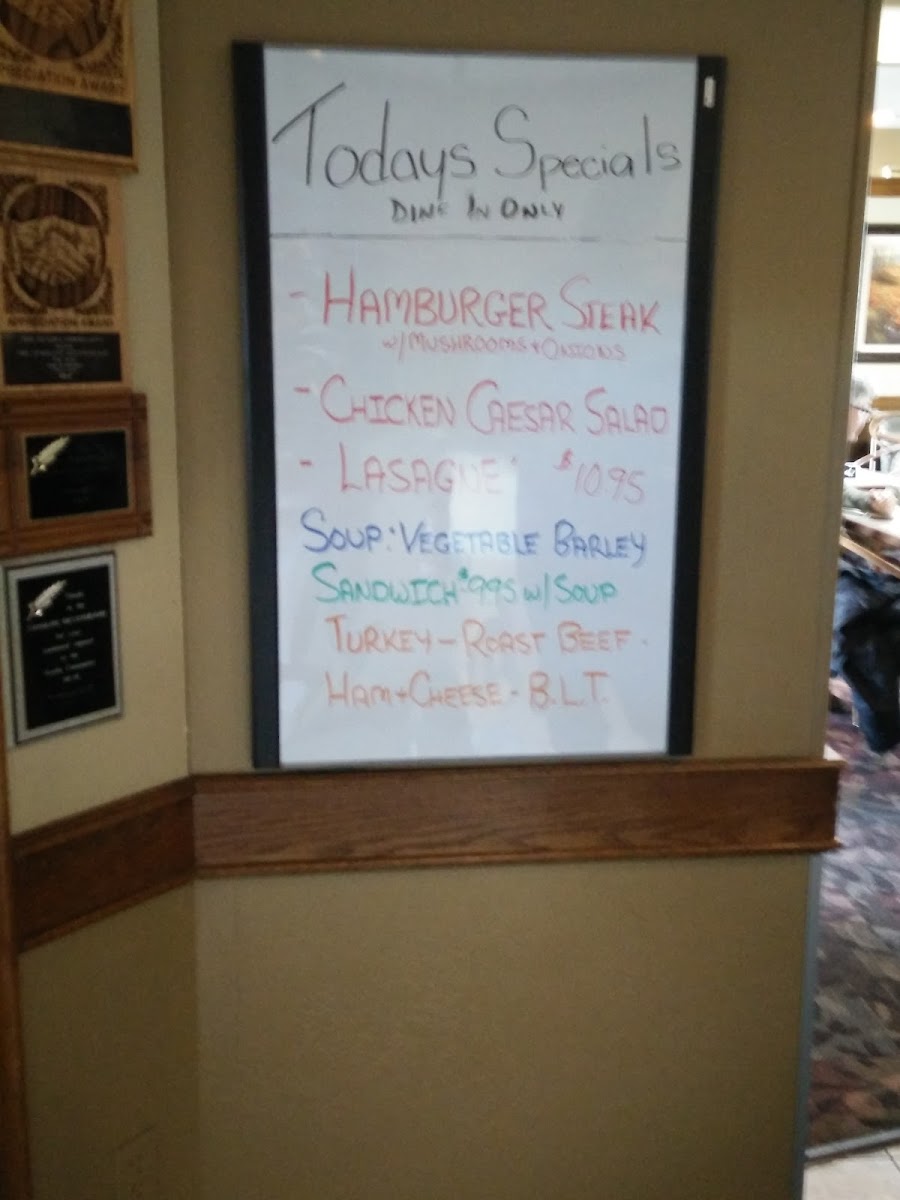 PRECIATION AWARD
Todays Specials
DINE IN ONLY
- HAMBURGER STEAK
w/MUSHROOMS + ONIONS
- CHICKEN CAESAR SALAD
- LASAGUE $10.95
SOUP: VEGETABLE BARLEY
SANDWICH $9.95 w/ SOUP
TURKEY - ROAST BEEF
HAM + CHEESE - B.L.T.